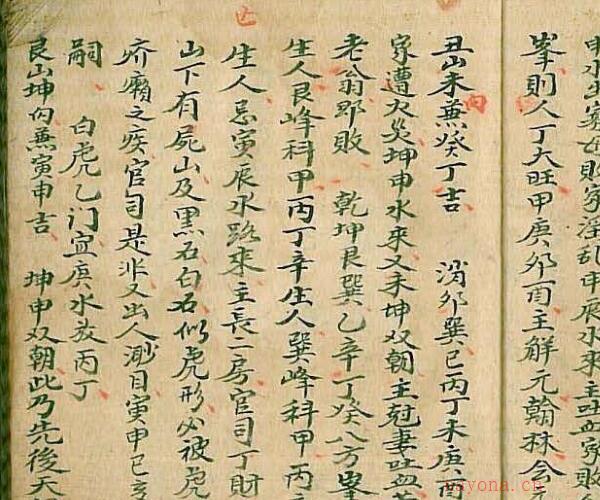 申水生窮乞敗家淫乱申辰水來主吐血家敗
峯則人丁大旺甲庚夘酉主觧元翰林
丑山未兼癸丁吉 消夘巽巳丙丁未庚
向
家遭火災坤申水來又未坤双朝主尅妻吐血
老翁郡敗 乾坤艮巽乙辛丁癸八方峯
生人艮峰科甲丙丁辛生人巽峰科甲丙
生人忌寅辰水路來主長二房官司丁財
山下有屍山及黑石白石似虎形必被虎
疥癩之疾官司是非又出人渺目寅申巳亥
嗣 白虎乙门宜庚水放丙丁
艮山坤向兼寅申吉 坤申双朝此乃先後天
yayona.cn